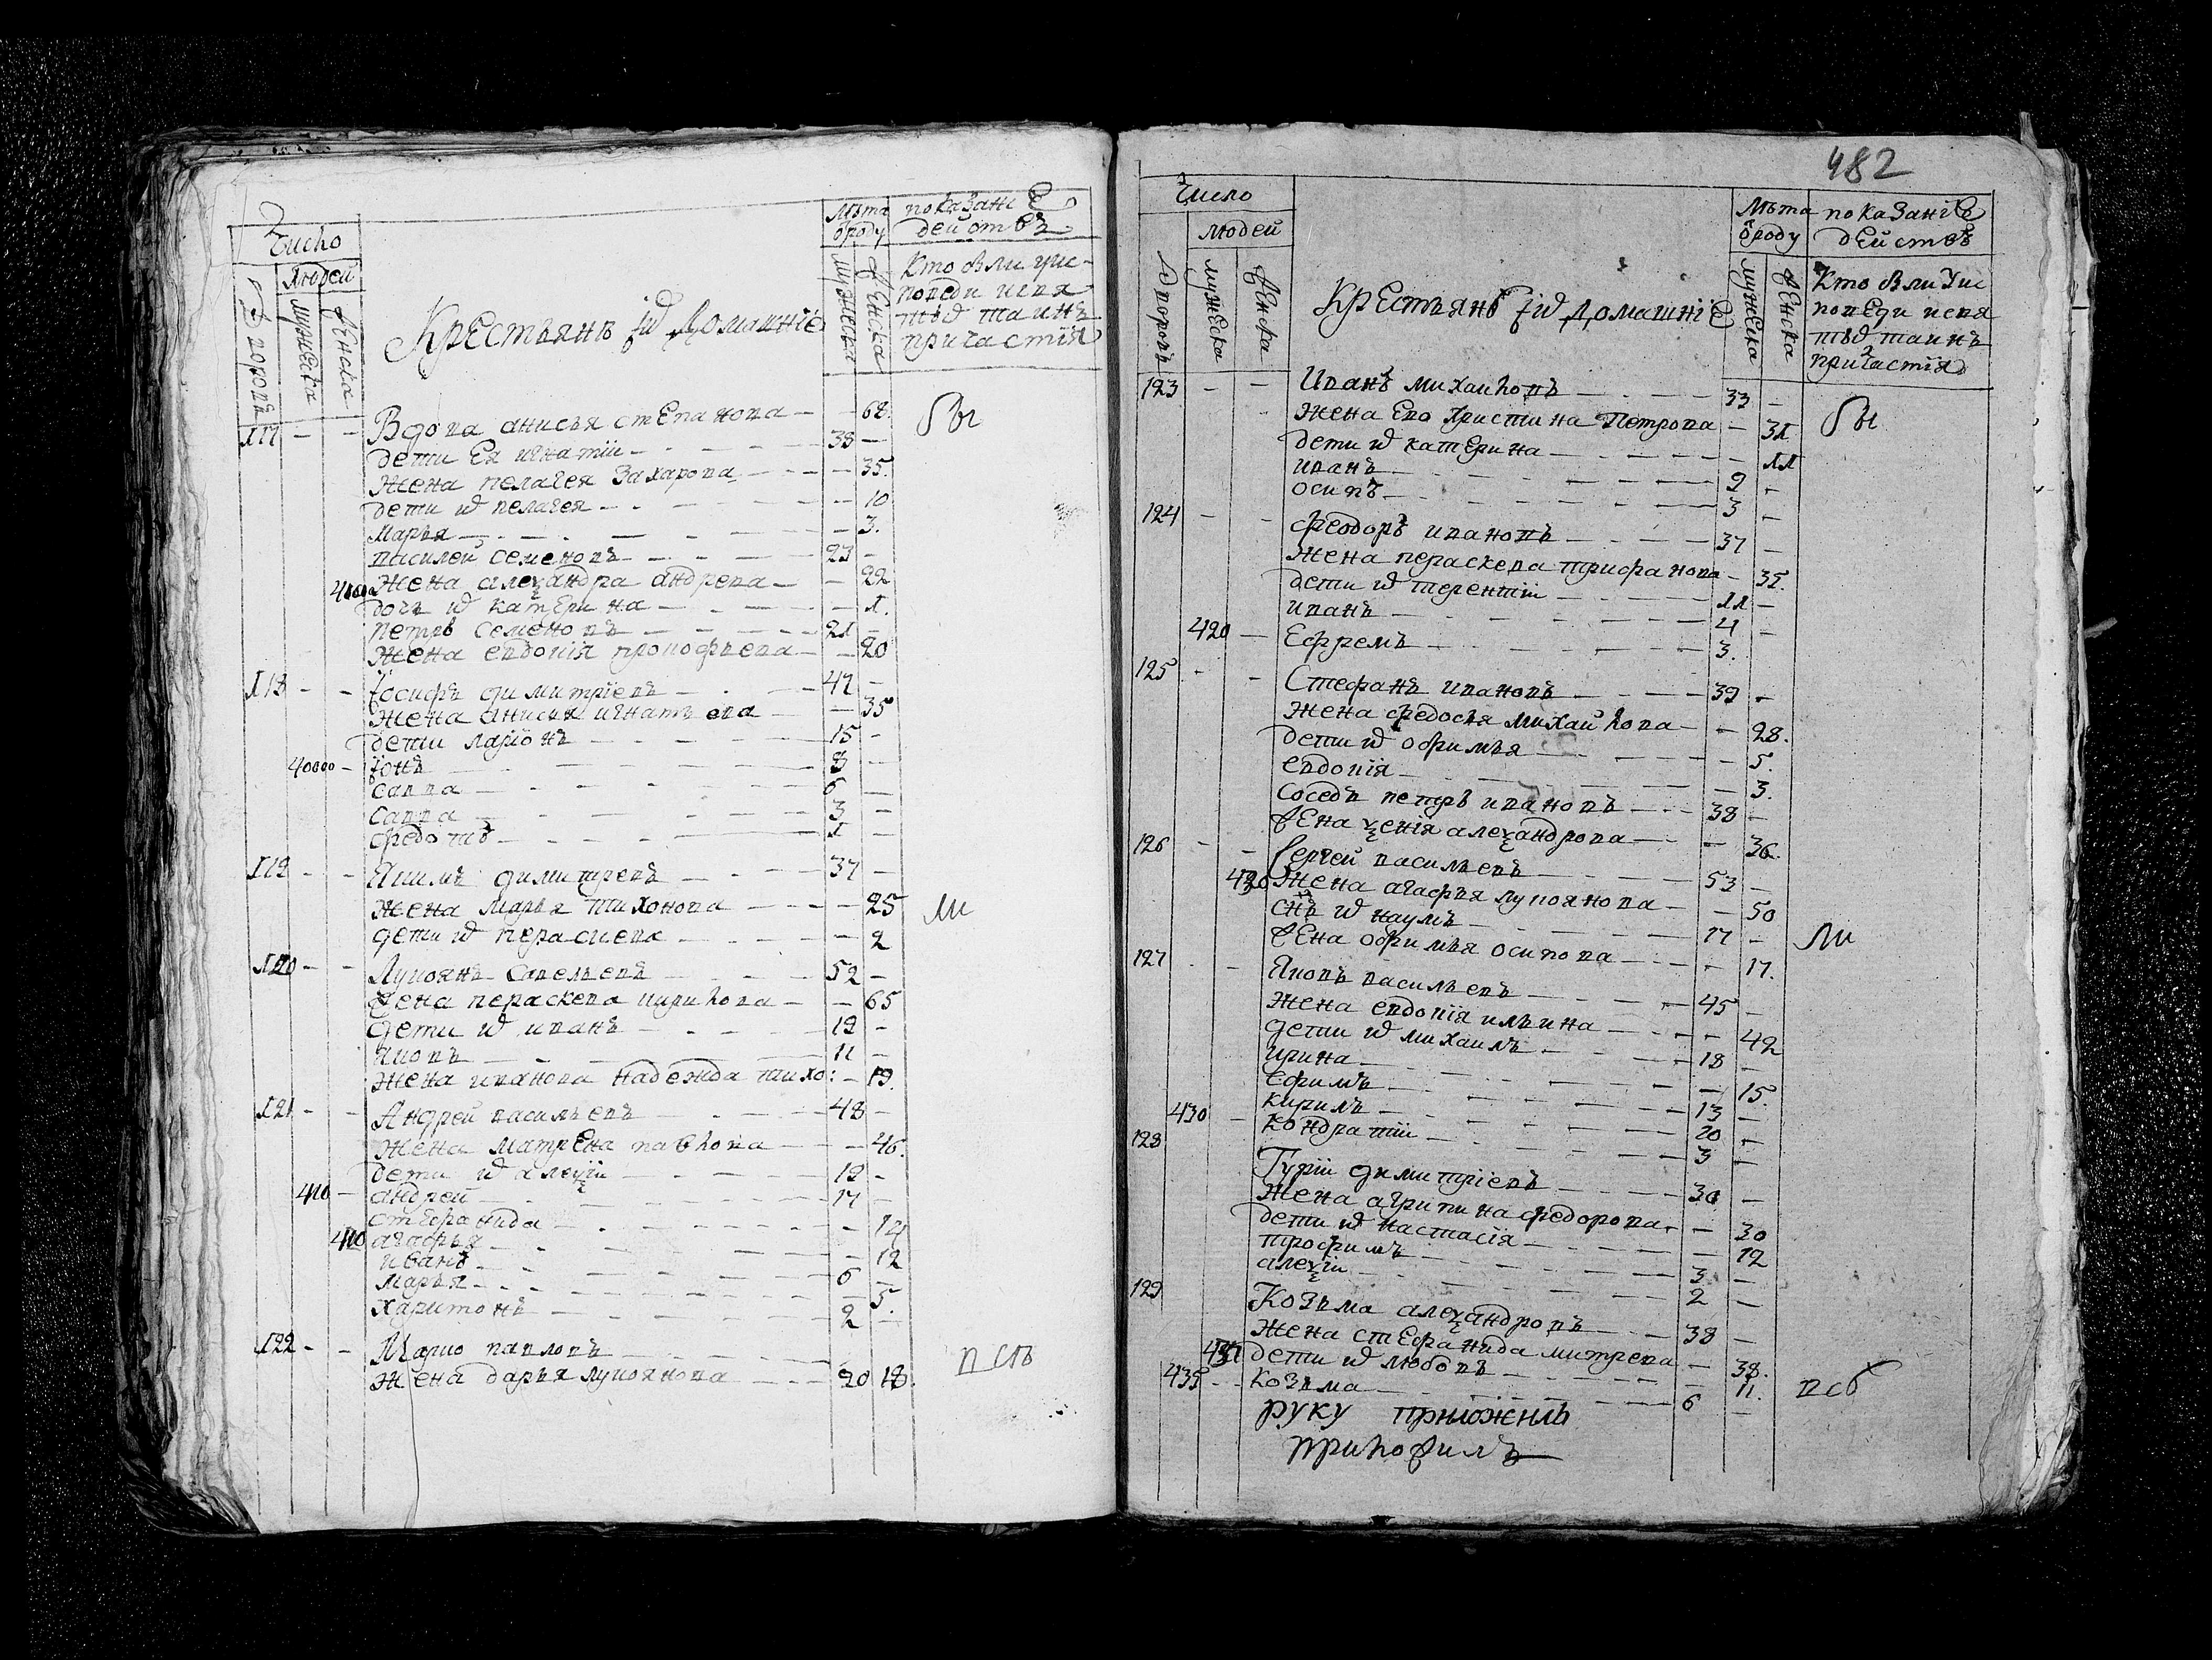 Число
Людей
Дворовъ
мужеска
женска
Крестьянъ їѡ домашнїе
Лѣта
ѿроду
мужеска
женска
показанїе
действъ
Кто были у ис-
поведи и свя-
тыѡ таинъ
причастїя
117 - - Вдова анисья степанова - - 68. бы
дети Ея игнатїи - 38 -
Жена пелагея Захарова - - 35.
дети ѡ пелагея - - 10
Марья - - 3.
василеи семеновъ - 23 -
Жена алеѯандра андрева - - 22
дочь ѡ катерина - - 1.
петръ Семеновъ - 21 -
Жена евдокїя прокофьева - - 20
118 - - їосифъ димитрїевъ - 47 -
Жена анисья игнатьева - - 35
дети ларїонъ - 15 -
їонъ - 8 -
савва - 6 -
савва - 3 -
федотъ - 1 -
119 - - Якимъ димитревъ - 37 -
Жена марья тихонова - - 25 ли
дети ѡ пераскева - - 2
120 - - Лукоянъ савельевъ - 52 -
Жена пераскева кирилова - - 65
дети ѡ иванъ - 19 -
яковъ - 11 -
Жена иванова надежда тихо: - 19.
121 - - Андреи васильевъ - 48 -
Жена матрена павлова - - 46.
дети ѡ алеѯїи - 19 -
410 - андреи - 17 -
стефанида - - 14
410 агафья - - 12
иванъ - 6 -
марья - - 5.
харитонъ - 2 -
122 - - Марко павловъ -
Жена дарья лукоянова - 20 18.
482
Число
людей
Дворовъ
мужеска
женска
Крестьянъ їѡ домашнїе
Лѣта
ѿроду
мужеска
женска
показанїе
действъ
Кто были у ис
поведи и свя
тыѡ таинъ
причастїя
123 - - Иванъ михаиловъ - 33 - бы
Жена Его христина Петрова - 31
дети ѡ катерина - - 11
иванъ - 9 -
осипъ - 3 -
124 - - феодоръ ивановъ - 37 -
Жена пераскева трифанова - 35.
дети ѡ терентїи - 11 -
иванъ - 4 -
420 - Ефремъ - 3.
125 - - Стефанъ ивановъ - 39 -
Жена федосья михаилова - - 28.
дети ѡ офимья - - 5.
евдокїя - - 3.
соседъ петръ ивановъ - 38 -
Жена ѯенїя алеѯандрова - - 36.
126 - - Сергеи васильевъ - 53 -
Жена агафья лукоянова - - 50
снъ ѡ наумъ - 17 - ли
Жена офимья осипова - - 17.
127 - Яковъ васильевъ - 45 -
Жена евдокїя ильина - - 42
дети ѡ михаилъ - 18 -
ирина - - 15.
ефимъ - 13 -
430 - кирилъ - 20 -
кондратїи - 3 -
128 Гурїи димитрїевъ - 30 -
Жена агрипина федорова - - 30
дети ѡ настасїя - - 12
трофимъ - 3 -
алеѯїи - 2 -
129 Козьма алеѯандровъ - 38 -
Жена стефанида митрева - 38.
дети ѡ любовь - - 11.
435 - - козьма - 6 -
руку приложилъ